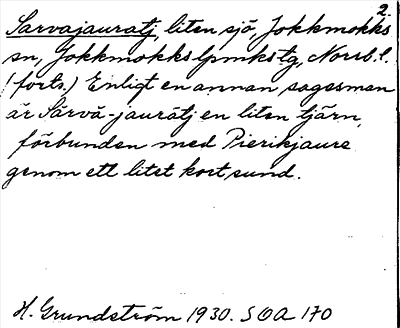 2.
Sarvajauratj, liten sjö, Jokkmokks
sn, Jokkmokks lpmkstg, Norrb. l.
(forts.) Enligt en annan sagesman
är Särvā-jaurātj en liten tjärn,
förbunden med Pierikjaure
genom ett litet kort sund.
H. Grundström 1930. SOA 170